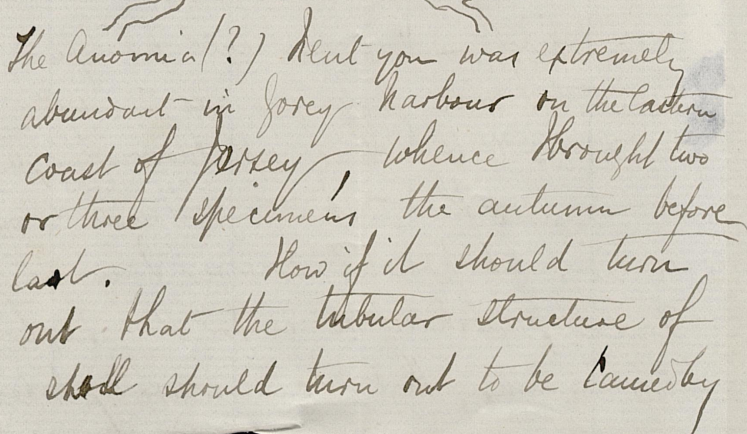 The Anomia (?) I sent you was extremely
abundant in Gorey harbour on the Eastern
coast of Jersey, whence I brought two
or three specimens the autumn before
last. How if it should turn
out that the tubular structure of
shell should turn out to be caused by